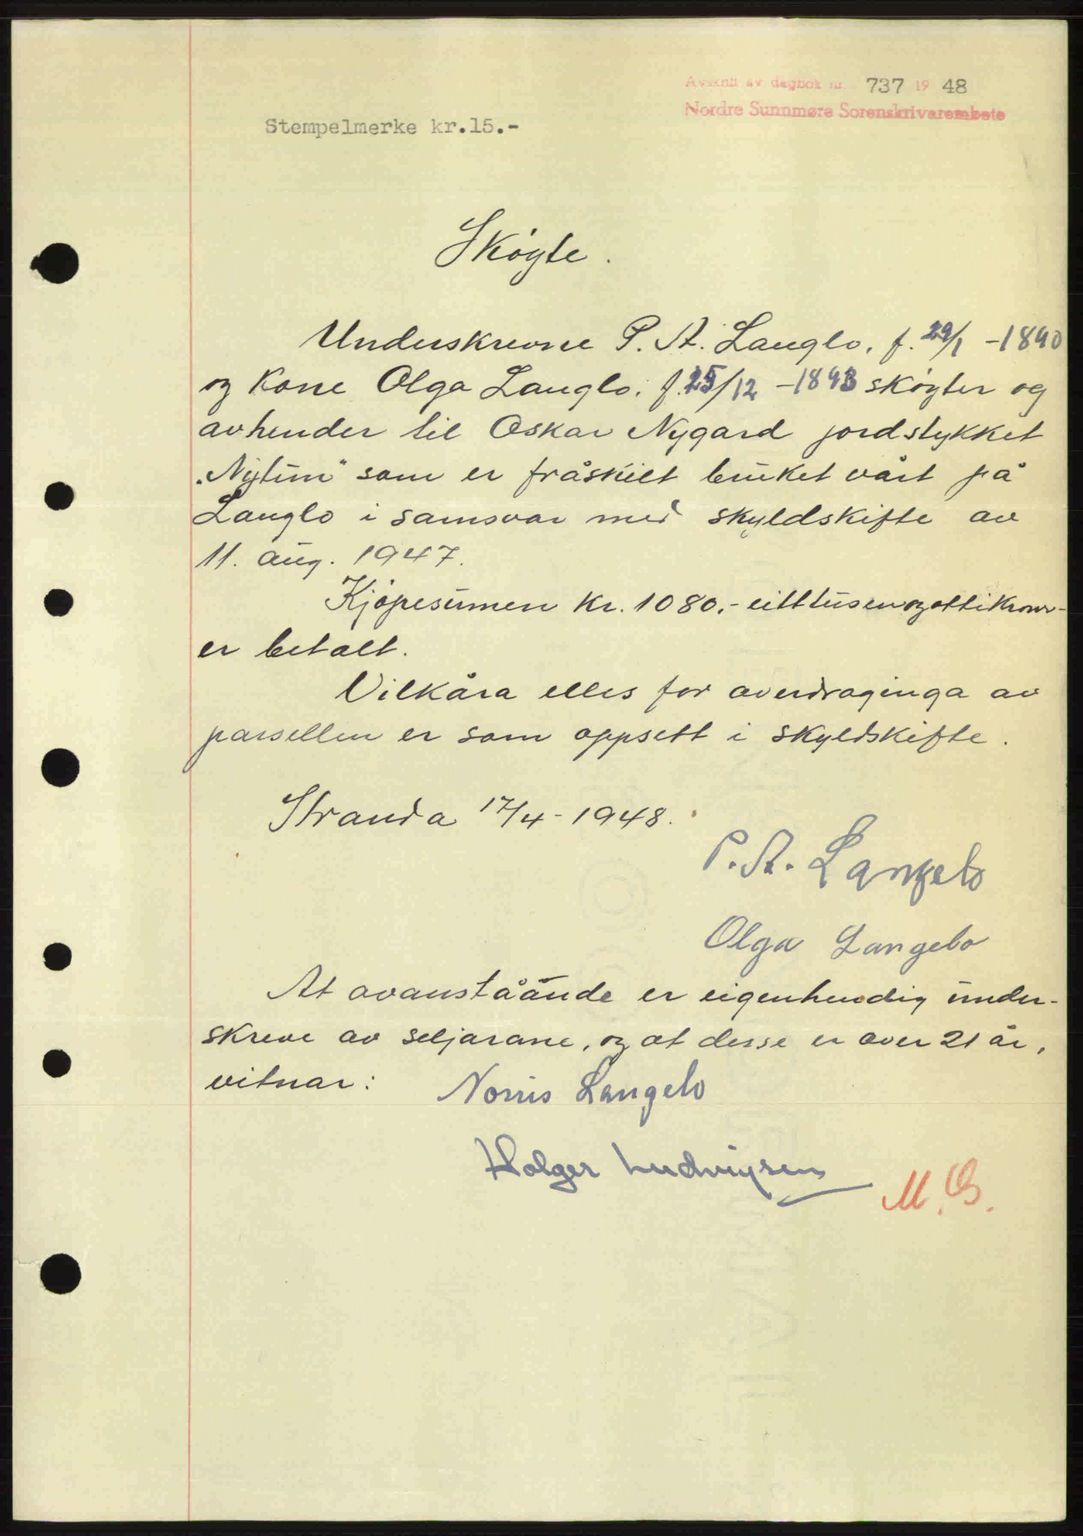 Avskrift av dagbok nr. 737 19 48
Nordre Sunnmøre Sorenskrivarembete
Stempelmerke kr.15.-
Skøyte.
Underskrevne P. A. Langlo, f. 29/1 -1890
og kone Olga Langlo, f. 25/12 -1893 skøyter og
avhender til Oskar Nygard jordstykket
"Nytun" som er fråskilt bruket vårt på
Langlo i samsvar med skyldskifte av
11. aug. 1947.
Kjøpesumen kr. 1080.- eitttusenogottikroner-
er betalt.
Vilkåra elles for averdraginga av
parsellen er som oppsett i skyldskifte.
Stranda 17/4-1948.
P. A. Langelo
Olga Langelo
At ovanståande er eigenhendig under-
skreve av seljarane, og at desse er over 21 år,
vitnar: Norris Langelo
Holger Ludvigsen
M. G.